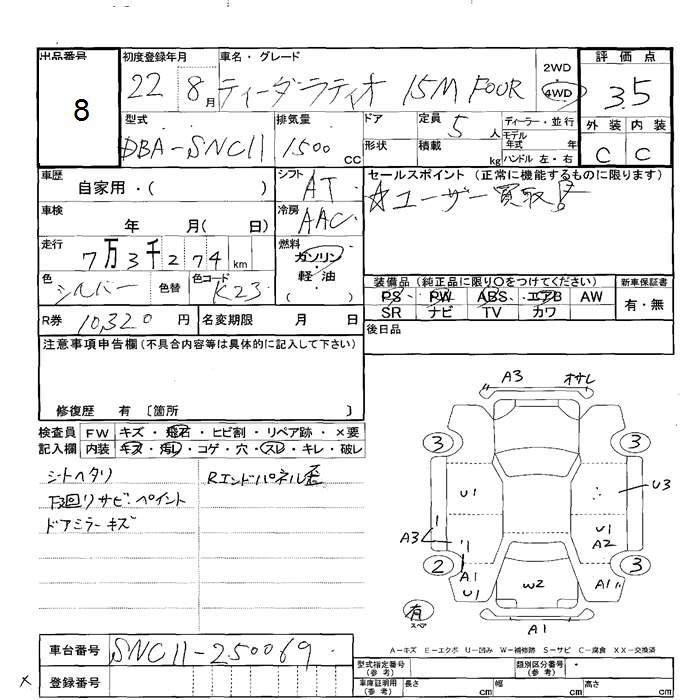 出品番号
8
初度登録年月
22 8月
車名・グレード
ティーダラティオ 15M FOUR
2WD
4WD
評価点
3.5
外装 内装
C C
型式
DBA-SNC11
排気量
1500 cc
ドア
形状
定員 5 人
積載 kg
ディーラー・並行
モデル年式 年
ハンドル 左・右
車歴
自家用・( )
シフト
AT
セールスポイント (正常に機能するものに限ります)
☆ユーザー買取!
車検
年 月( 日)
冷房
AAC
走行
7万3千274 km
燃料
ガソリン
・
軽・油
( )
色
シルバー
色替
色コード
K23
装備品 (純正品に限り〇をつけてください)
PS PW ABS エアB AW
SR ナビ TV カワ
新車保証書
有・無
R券 10,320 円
名変期限 月 日
後日品
注意事項申告欄 (不具合内容等は具体的に記入して下さい)
修復歴 有 〔箇所 〕
検査員記入欄
FW キズ・飛石・ヒビ割・リペア跡・×要
内装 キズ・汚レ・コゲ・穴・スレ・キレ・破レ
シートヘタリ
Rエンドパネル歪
下回リサビ・ペイント
ドアミラーキズ
A3 オサレ
3 3
U1 U3
A3 U1
A2
2 3
A1
U1
W2
A1
有
スペア
A1
A−キズ E−エクボ U−凹み W−補修跡 S−サビ C−腐食 XX−交換済
車台番号 SNC11-250069
登録番号
型式指定番号
(参考)
類別区分番号
(参考)
車庫証明用
(参考)
長さ cm 幅 cm 高さ cm